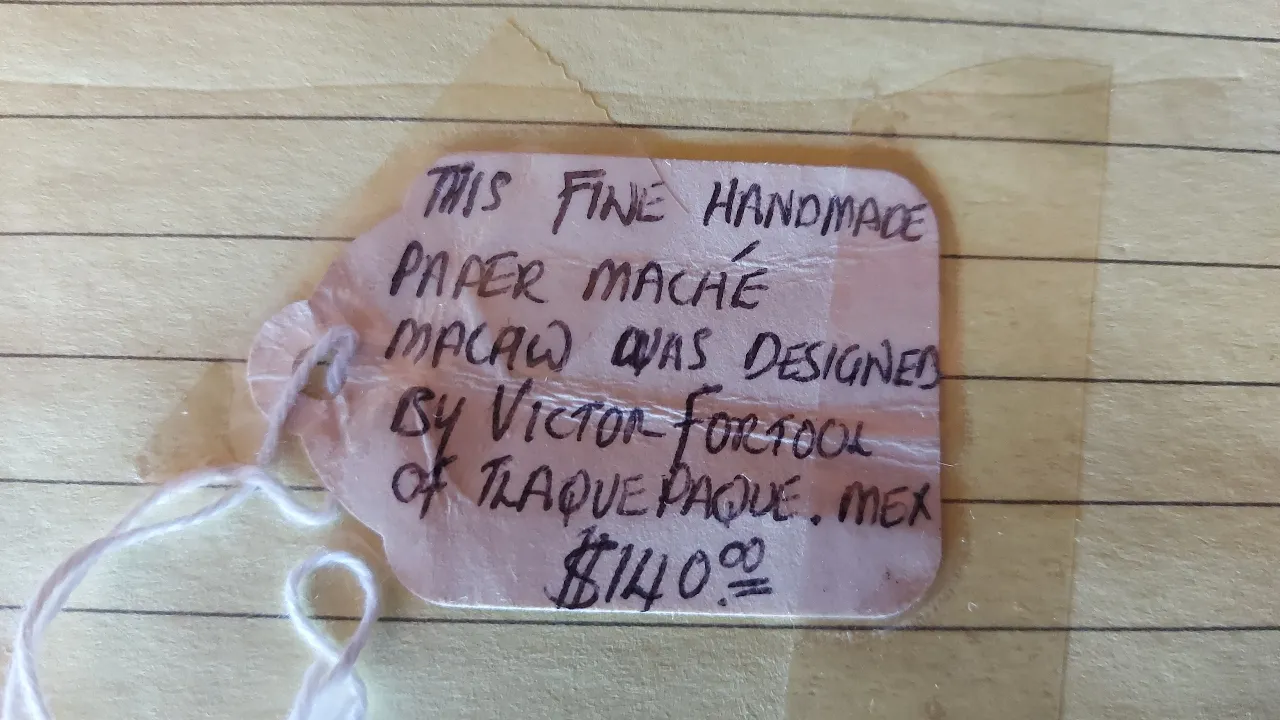 THIS FINE HANDMADE
PAPER MACHÉ
MACAW WAS DESIGNED
BY VICTOR FORTOOL
OF TLAQUEPAQUE. MEX
$140.00